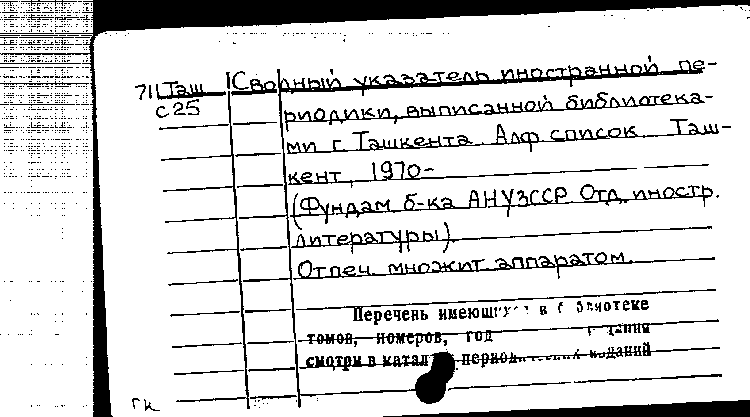 71Таш Сводный указатель иностранной пе-
С25 риодики, выписанной библиотека-
ми г. Ташкента. Алф. список. Таш-
кент, 1970-
(Фундам. б-ка АНУзССР. Отд. иностр.
литературы).
Отпеч. множит. аппаратом.
Перечень в
томов, номеров,
смотри в изданий
ГК